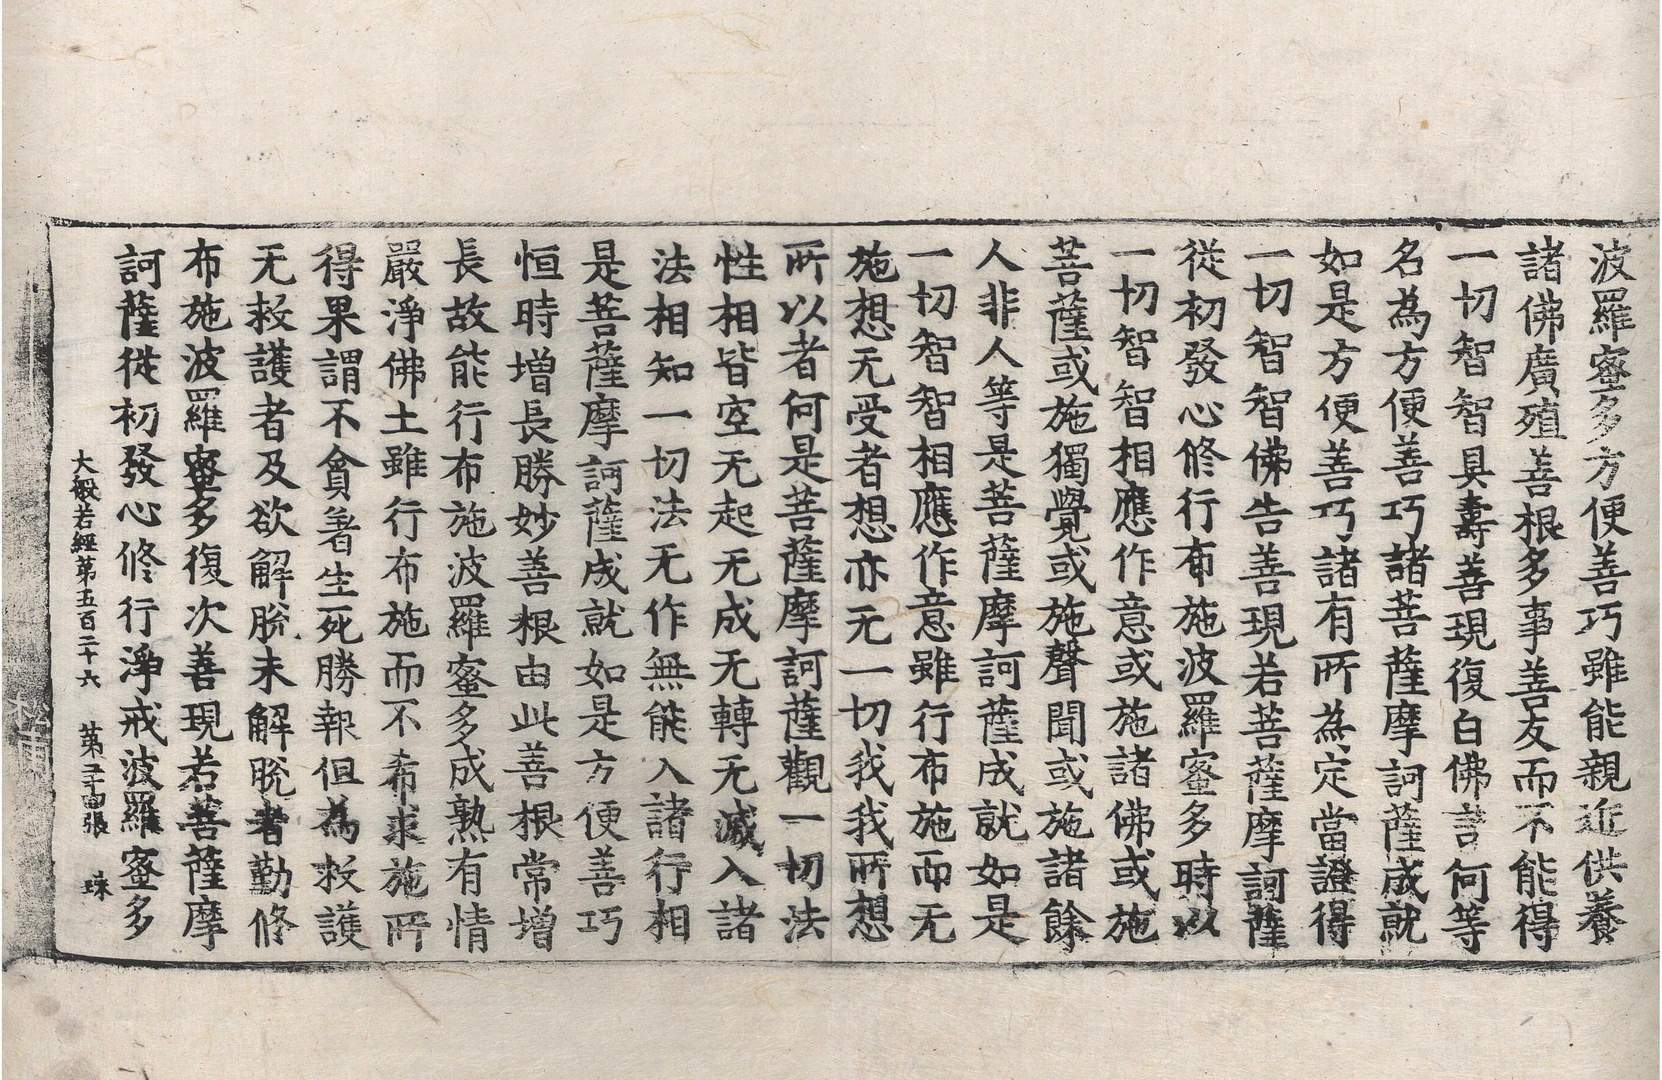 波羅蜜多方便善巧雖能親近供養
諸佛廣殖善根多事善友而不能得
一切智智具壽善現復白佛言何等
名為方便善巧諸菩薩摩訶薩成就
如是方便善巧諸有所為定當證得
一切智智佛告善現若菩薩摩訶薩
從初發心修行布施波羅蜜多時以
一切智智相應作意或施諸佛或施
菩薩或施獨覺或施聲聞或施諸餘
人非人等是菩薩摩訶薩成就如是
一切智智相應作意雖行布施而无
施想无受者想亦无一切我我所想
所以者何是菩薩摩訶薩觀一切法
性相皆空无起无成无轉无滅入諸
法相知一切法无作無能入諸行相
是菩薩摩訶薩成就如是方便善巧
恒時增長勝妙善根由此善根常增
長故能行布施波羅蜜多成熟有情
嚴淨佛土雖行布施而不希求施所
得果謂不貪著生死勝報但為救護
无救護者及欲解脫未解脫者勤修
布施波羅蜜多復次善現若菩薩摩
訶薩從初發心修行淨戒波羅蜜多
大般若經第五百二十六 第二十四張 珠